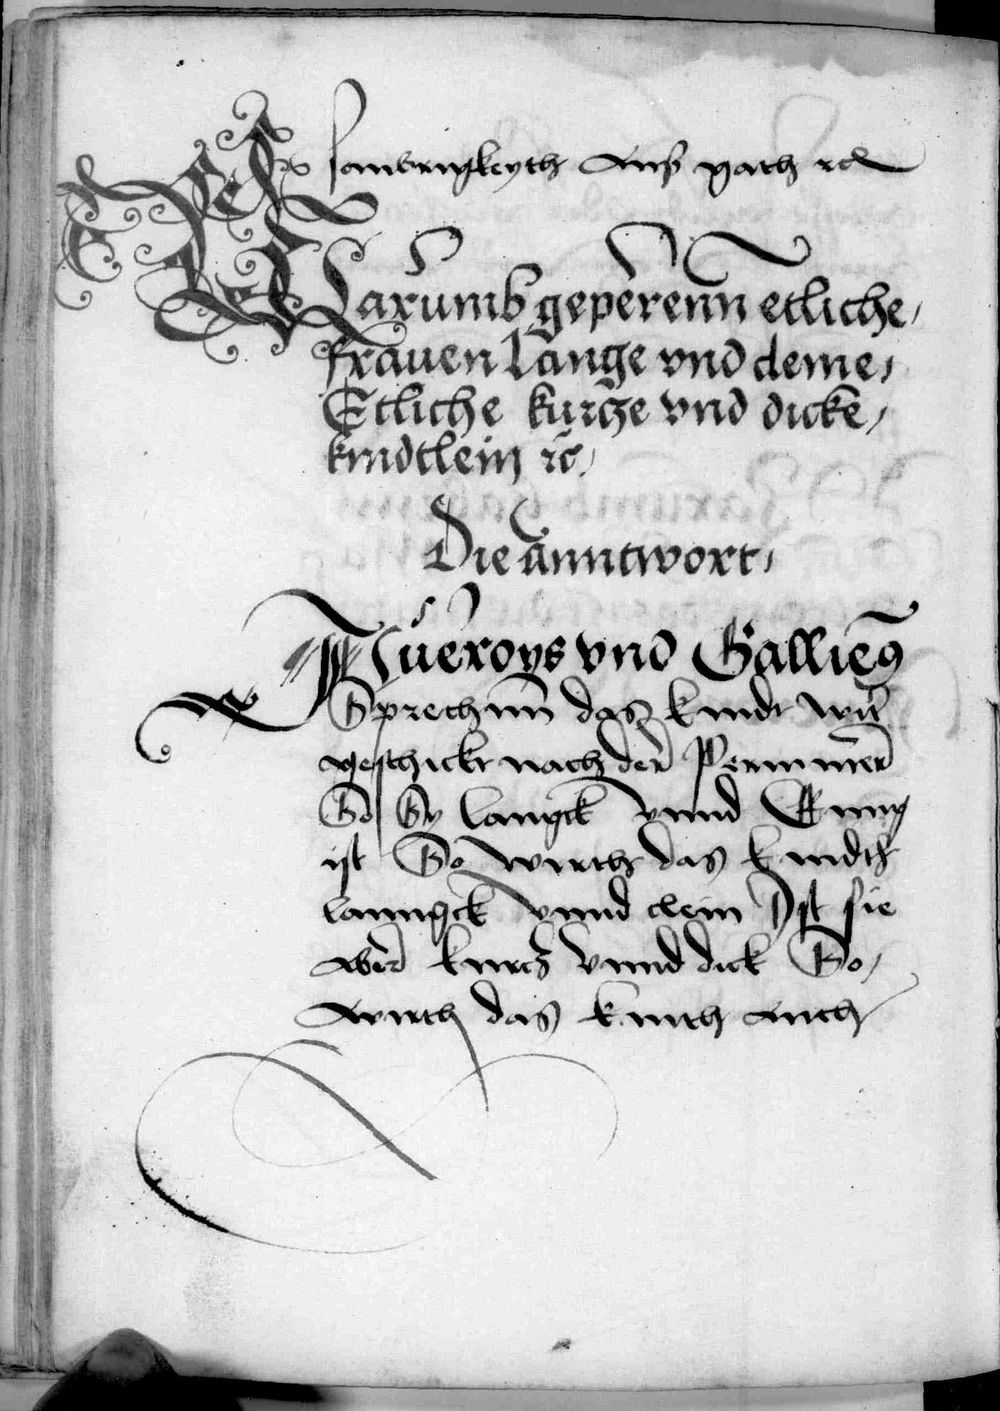 sambrugkeyth Auß gath rc
Warumb geperenn etliche,
frauen Lange vnd deine,
Etliche kurtze vnd dicke,
kindtlein rc,
Die anntwort,
Aueroys vnd Gallieg
Sprechnn das kindt wir
geschickt nach der
So Sy langck vnnd
ist So wirth das kindth
lanngck vnnd clein Ist sie
aber kurtz vnnd dick So,
wirth das kinth auch